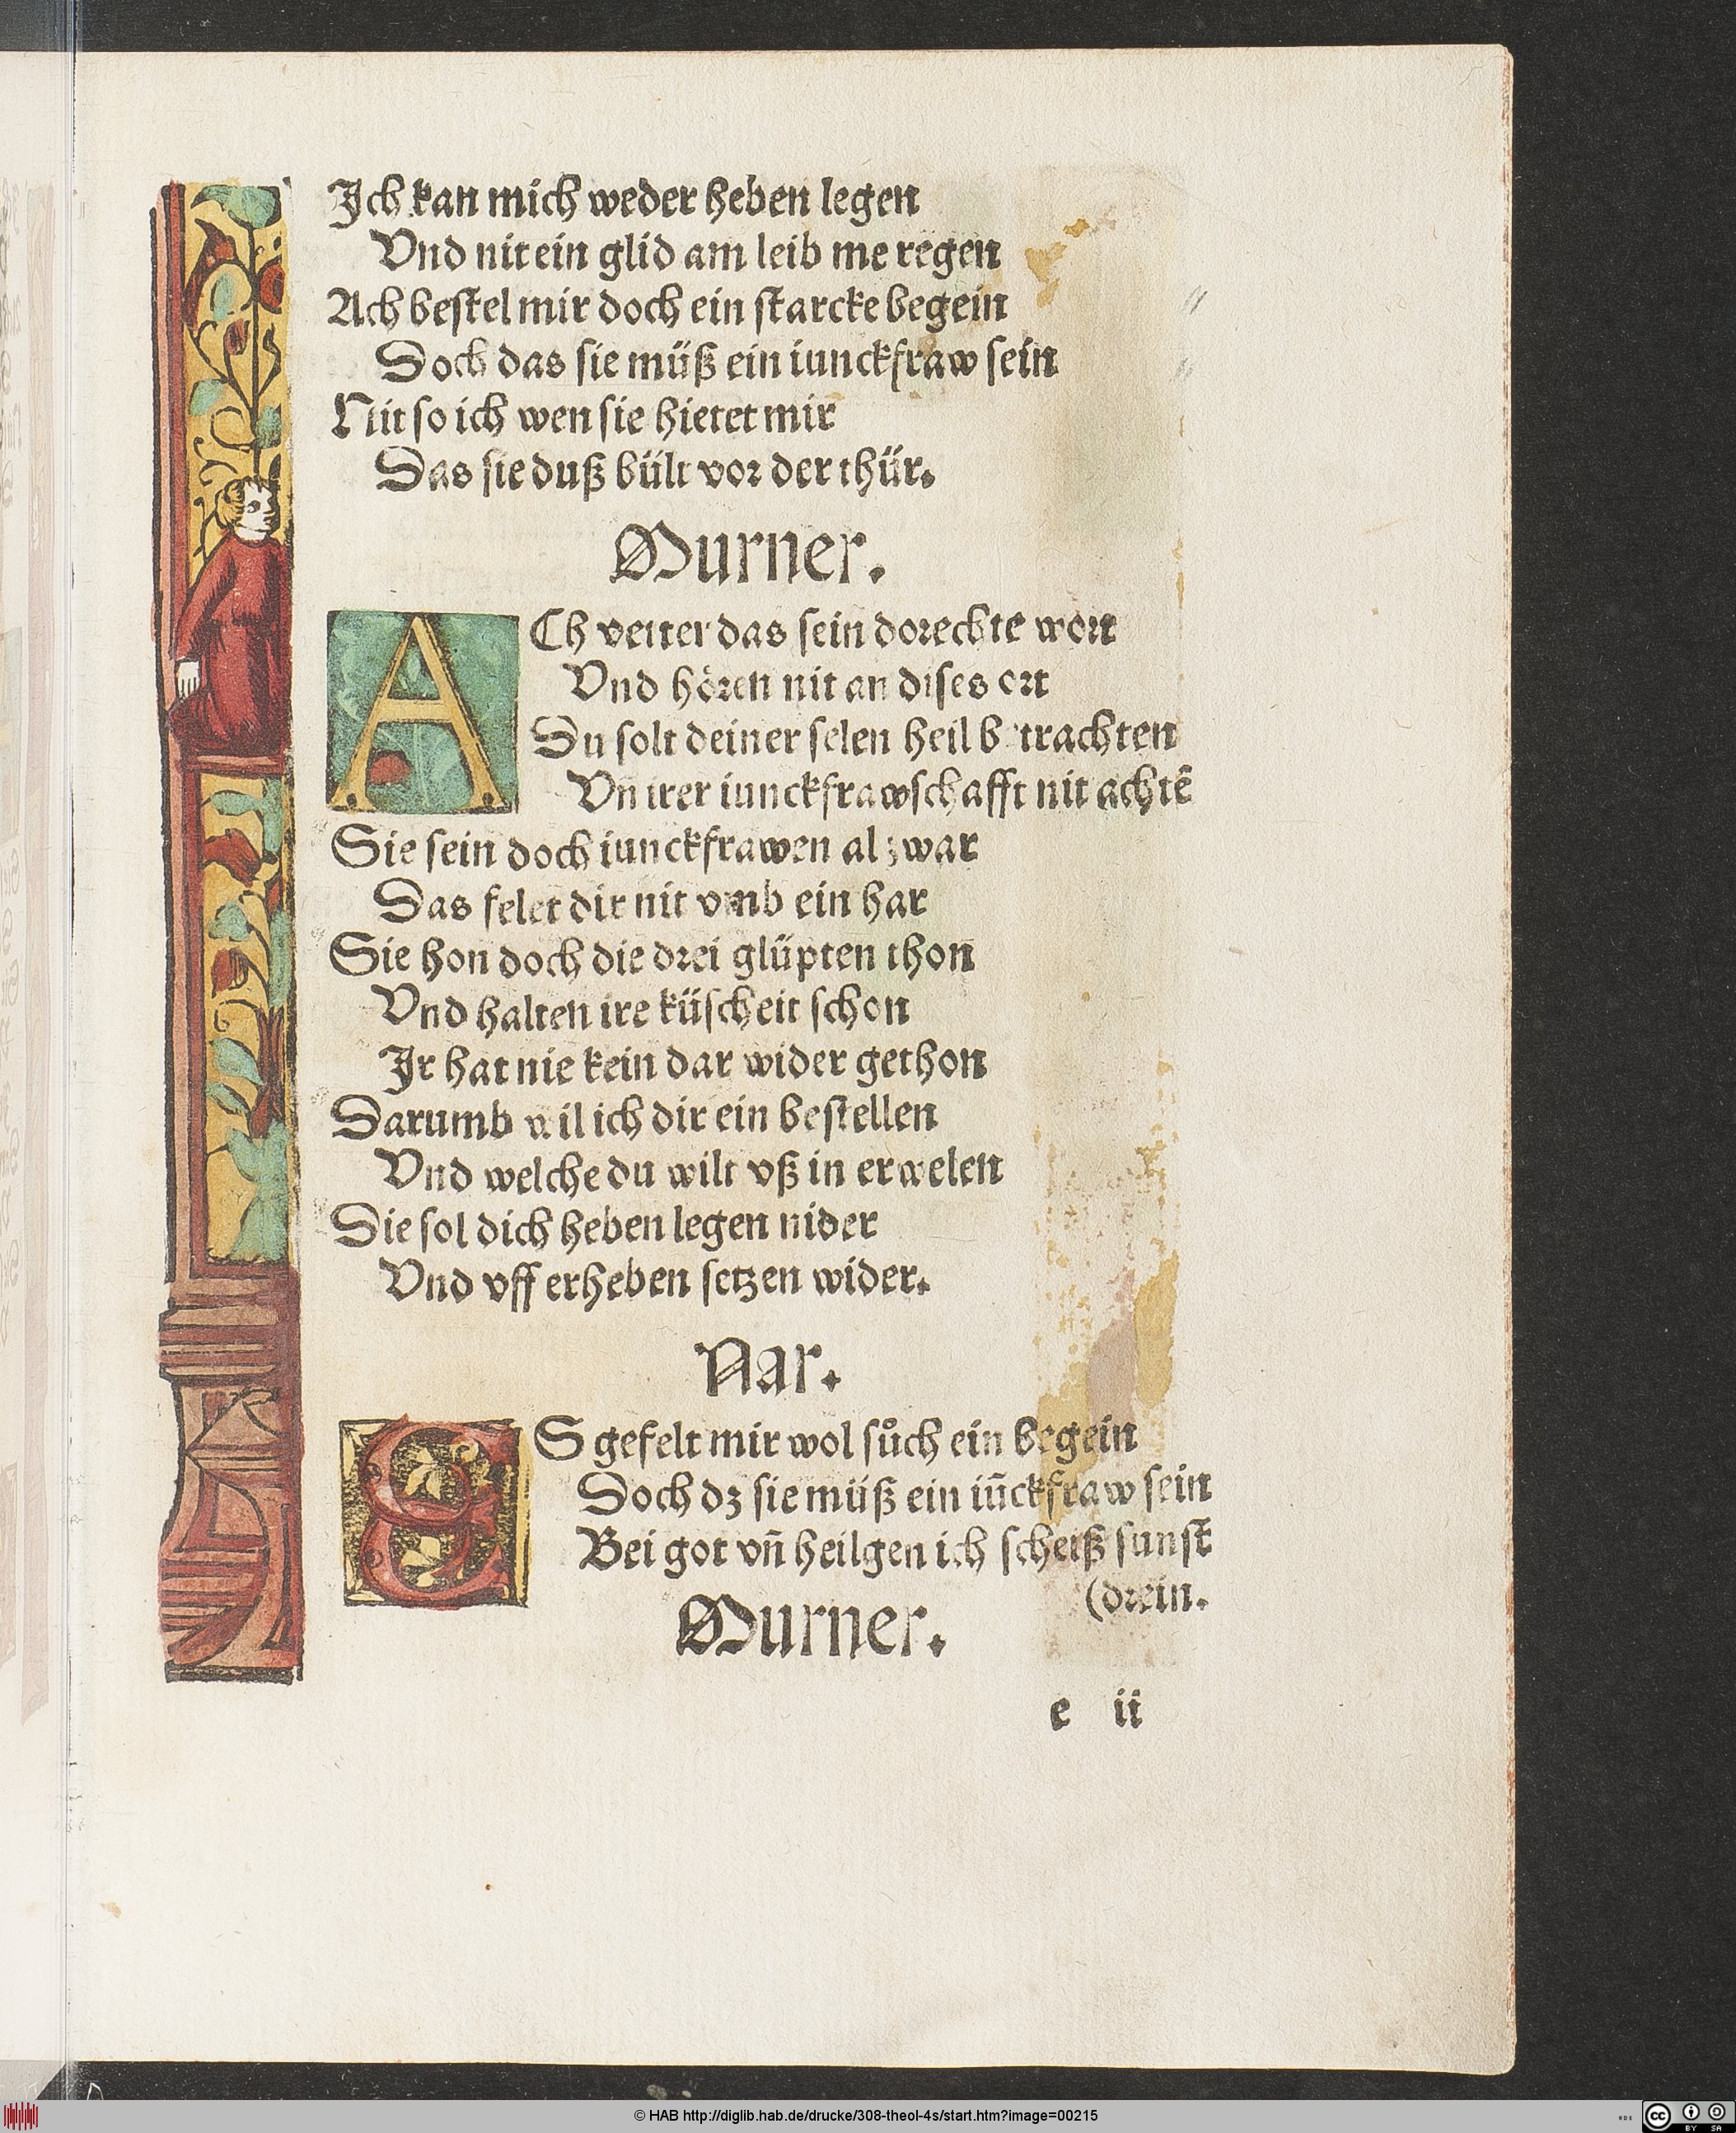 Ich kan mich weder heben legen
Vnd nit ein glid am leib me regen
Ach bestel mir doch ein starcke begein
Doch das sie müß ein iunckfraw sein
Nit so ich wen sie hietet mir
Das sie duß bült vor der thür.
Murner.
ACh vetter das sein dorechte wort
Vnd hören nit an dises ort
Du solt deiner selen heil betrachten
Vn̄ irer iunckfrawschafft nit achtē
Sie sein doch iunckfrawen al zwar
Das felet dir nit vmb ein har
Sie hon doch die drei glüpten thon
Vnd halten ire küscheit schon
Ir hat nie kein dar wider gethon
Darumb wil ich dir ein bestellen
Vnd welche du wilt vß in erwelen
Die sol dich heben legen nider
Vnd vff erheben setzen wider.
Nar.
ES gefelt mir wol sůch ein begein
Doch dz sie müß ein iūckfraw sein
Bei got vn̄ heilgen ich scheiß sunst
(drein.
Murner.
e ii
© HAB http://diglib.hab.de/drucke/308-theol-4s/start.htm?image=00215
cc BY SA